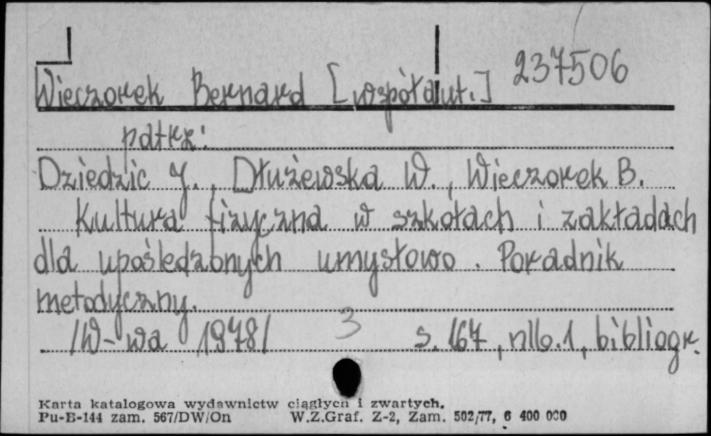 237506
Wieczorek Bernard [współaut.]
patrz:
Dziedzic J., Dłużewska W., Wieczorek B.
Kultura fizyczna w szkołach i zakładach
dla upośledzonych umysłowo. Poradnik
metodyczny.
/W-wa 1978/ 3 s. 167, nlb. 1, bibliogr.
Karta katalogowa wydawnictw ciągłych i zwartych.
Pu-B-144 zam. 567/DW/On W.Z.Graf. Z-2, Zam. 502/77, 6 400 000